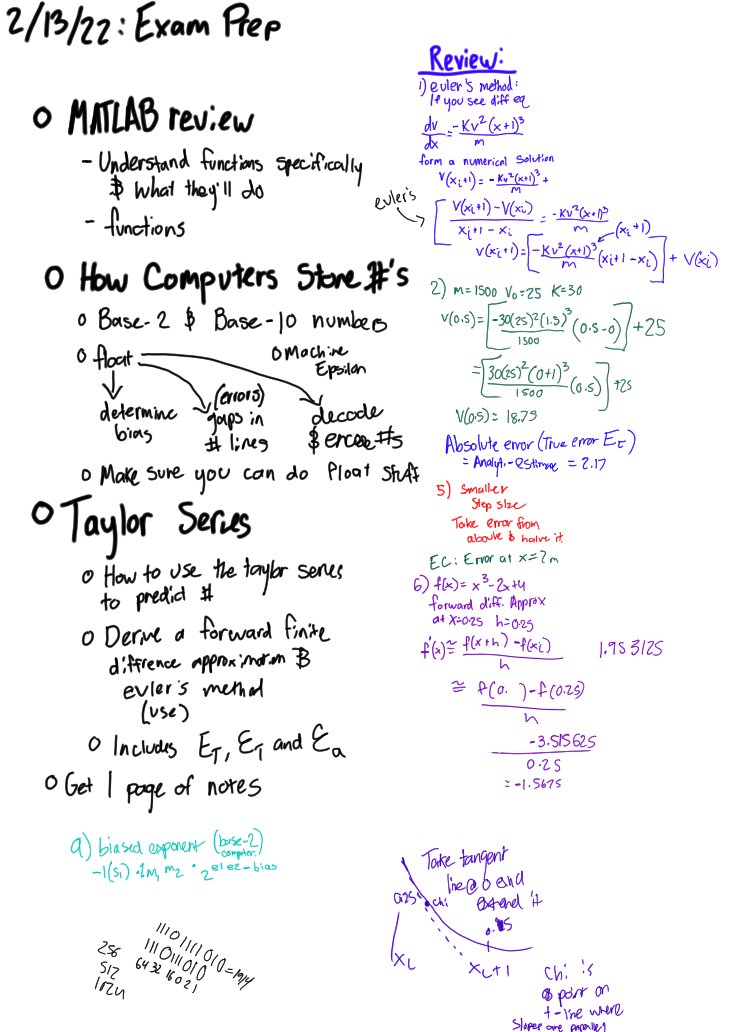 2/13/22: Exam Prep
O MATLAB review
- Understand functions specifically
& what they'll do
- functions
O How Computers Store #'s
O Base-2 & Base-10 numbers
O float
O Machine
Epsilon
determine
bias
(errors)
gaps in
# lines
decode
& encode #s
O Make sure you can do float stuff
O Taylor Series
O How to use the taylor series
to predict #
O Derive a forward finite
difference approximation &
euler's method
(use)
O Includes E_T, Ɛ_T and Ɛ_a
O Get 1 page of notes
a) biased exponent (base-2)
computer
-1(s1) · 1m1 m2 · 2^e1e2-bias
11101111010
1110111010
64 32 16 0 2 1
256
512
1024
Review:
1) euler's method:
If you see diff eq
dv/dx = -Kv²(x+1)³/m
form a numerical solution
V(xi+1) = -Kv²(x+1)³/m +
euler's
V(xi+1) - V(xi)/xi+1 - xi = -Kv²(x+1)³/m
(xi+1)
V(xi+1) = [-Kv²(x+1)³/m (xi+1 - xi)] + V(xi)
2) m=1500 V0=25 K=30
V(0.5) = [-30(25)²(1.5)³/1500 (0.5-0)] + 25
= [30(25)²(0+1)³/1500 (0.5)] + 25
V(0.5) = 18.75
Absolute error (True error E_t)
= Analyt. - estimate = 2.17
5) smaller
Step size
Take error from
above & halve it
EC: Error at x=2m
6) f(x) = x³-2x+4
forward diff. Approx
at x=0.25 h=0.25
f'(x) ≅ f(x+h) - f(xi)/h
1.953125
≅ f(0. ) - f(0.25)/h
-3.515625/0.25
= -1.5675
Take tangent
line @ 0 and
extend it
0.25
chi
xi
xi+1
Chi is
a point on
t-line where
slopes are parallel